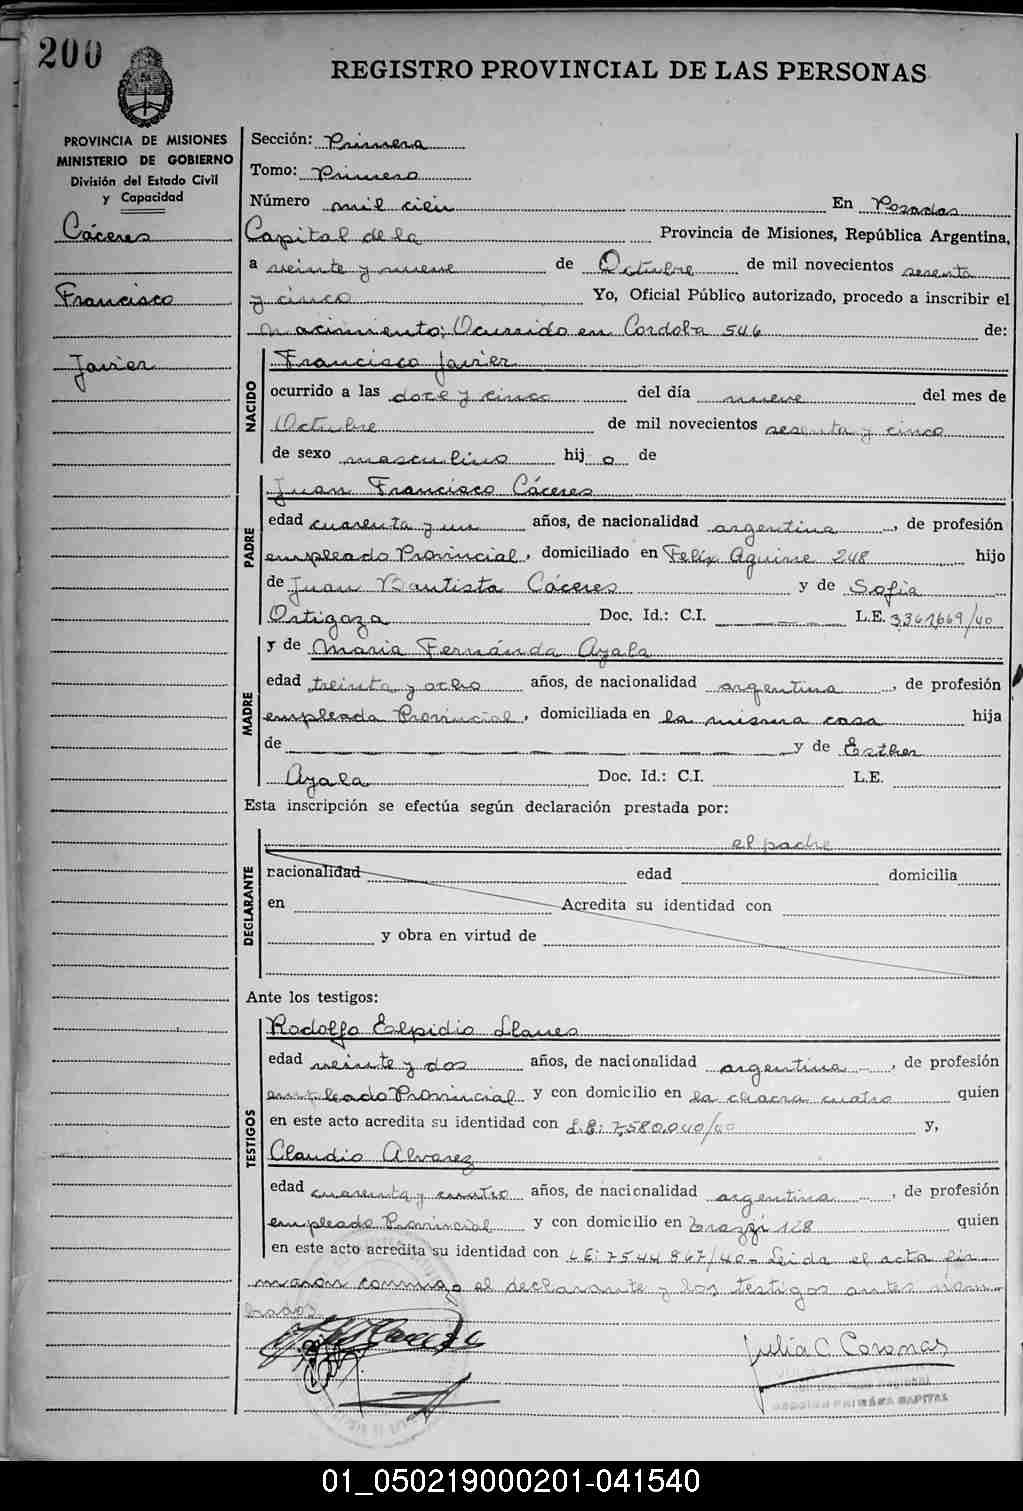 200
REGISTRO PROVINCIAL DE LAS PERSONAS
PROVINCIA DE MISIONES
MINISTERIO DE GOBIERNO
División del Estado Civil
y Capacidad
Cáceres
Francisco
Javier
Sección: Primera
Tomo: Primero
Número mil cien En Posadas
Capital de la Provincia de Misiones, República Argentina,
a veinte y nueve de Octubre de mil novecientos sesenta
y cinco Yo, Oficial Público autorizado, procedo a inscribir el
nacimiento; Ocurrido en Cordoba 546 de:
NACIDO
Francisco Javier
ocurrido a las doce y cinco del día nueve del mes de
Octubre de mil novecientos sesenta y cinco
de sexo masculino hij o de
PADRE
Juan Francisco Cáceres
edad cuarenta y un años, de nacionalidad argentina, de profesión
empleado Provincial, domiciliado en Felix Aguirre 248 hijo
de Juan Bautista Cáceres y de Sofia
Ortigoza Doc. Id.: C.I. L.E.
MADRE
y de Maria Fernánda Ayala
edad treinta y ocho años, de nacionalidad argentina, de profesión
empleada Provincial, domiciliada en la misma casa hija
de y de Esther
Ayala Doc. Id.: C.I. L.E.
Esta inscripción se efectúa según declaración prestada por:
DECLARANTE
el padre
nacionalidad edad domicilia
en Acredita su identidad con
y obra en virtud de
Ante los testigos:
TESTIGOS
Rodolfo Elpidio Llanes
edad veinte y dos años, de nacionalidad argentina, de profesión
empleado Provincial y con domicilio en la chacra cuatro quien
en este acto acredita su identidad con L.E: 7,580,040/40 y,
Claudio Alvarez
edad cuarenta y cuatro años, de nacionalidad argentina, de profesión
empleado Provincial y con domicilio en 128 quien
en este acto acredita su identidad con L E: 7544867/40 - Leida el acta fir
maron conmigo el declarante y los testigos antes nom-
brados
Julia C. Coronas
SECCION PRIMERA CAPITAL
01_050219000201-041540